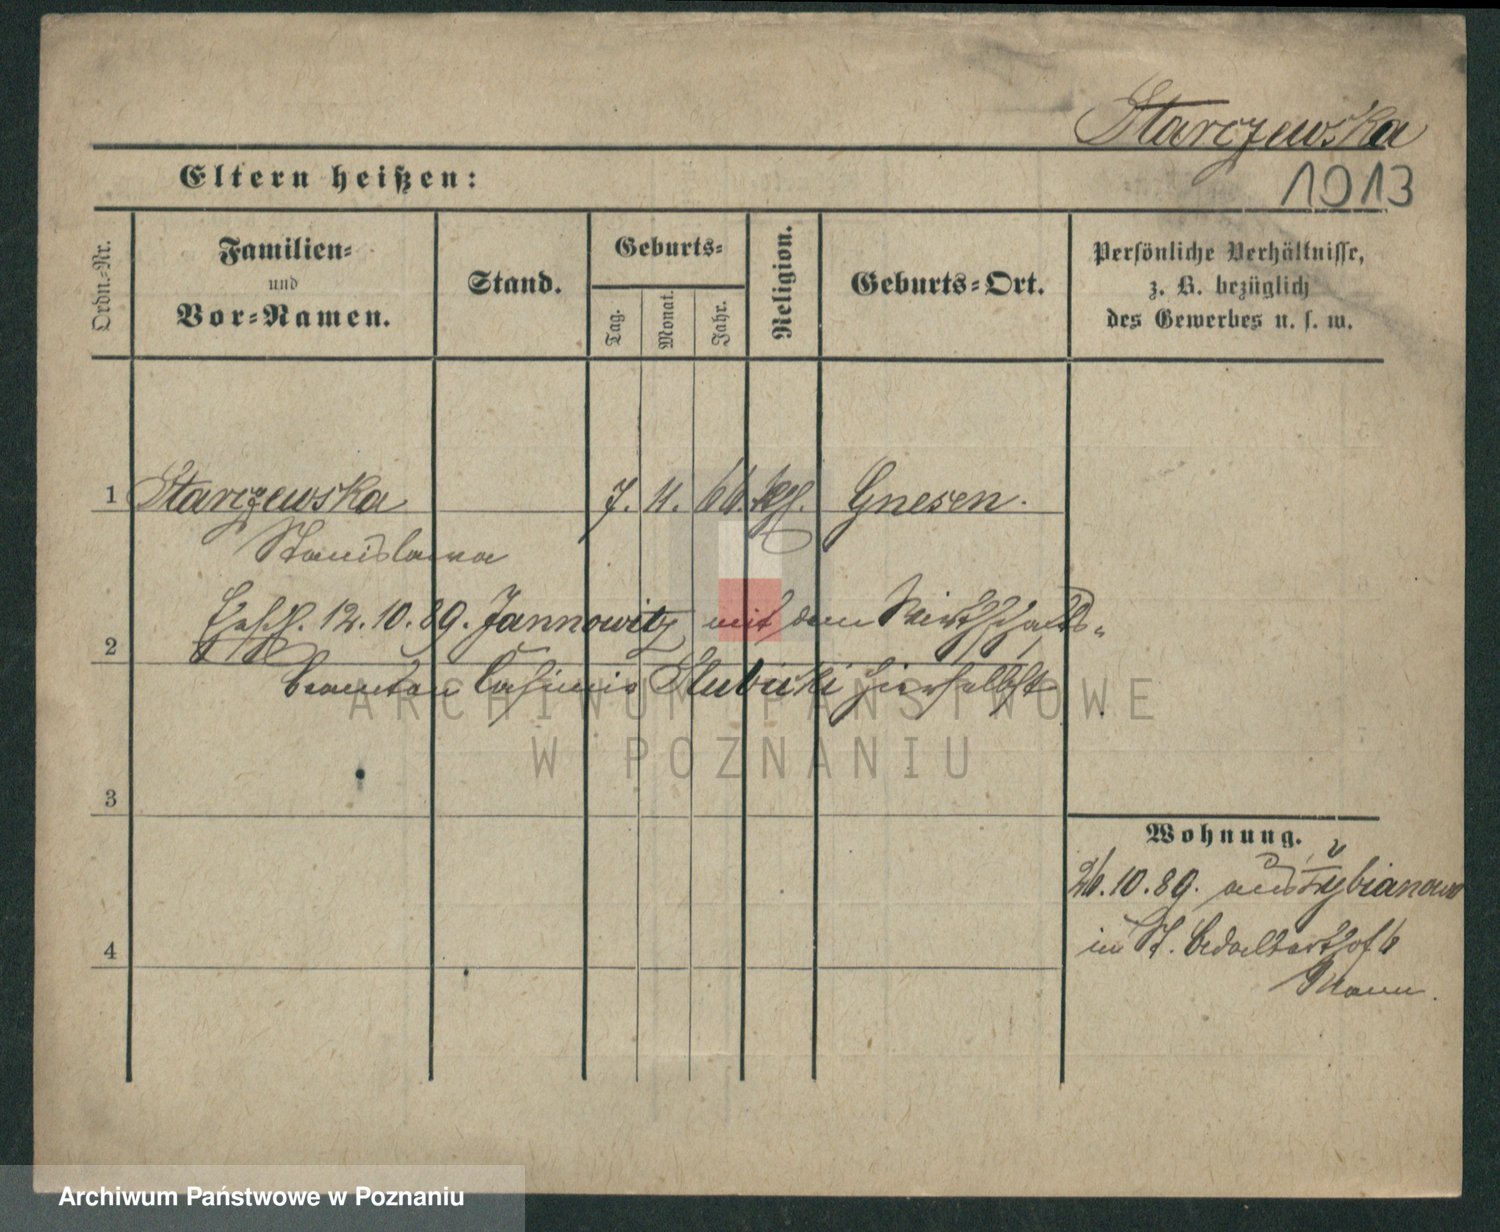 Starczewska
1913
Eltern heißen:
Ordn.-Nr.
Familien-
und
Vor-Namen.
Stand.
Geburts-
Tag.
Monat.
Jahr.
Religion.
Geburts-Ort.
Persönliche Verhältnisse,
z. B. bezüglich
des Gewerbes u. s. w.
1 Starczewska 7. 11. 66. kgl. Gnesen.
Stanislawa
2 Gesch. 12.10.89. Jannowitz mit dem Wirthschafts-
beamten Casimir Slubicki hierselbst
ARCHIWUM PAŃSTWOWE
W POZNANIU
3
Wohnung.
26.10.89. aus
in St. Adalberthof 6
4
Mann.
Archiwum Państwowe w Poznaniu